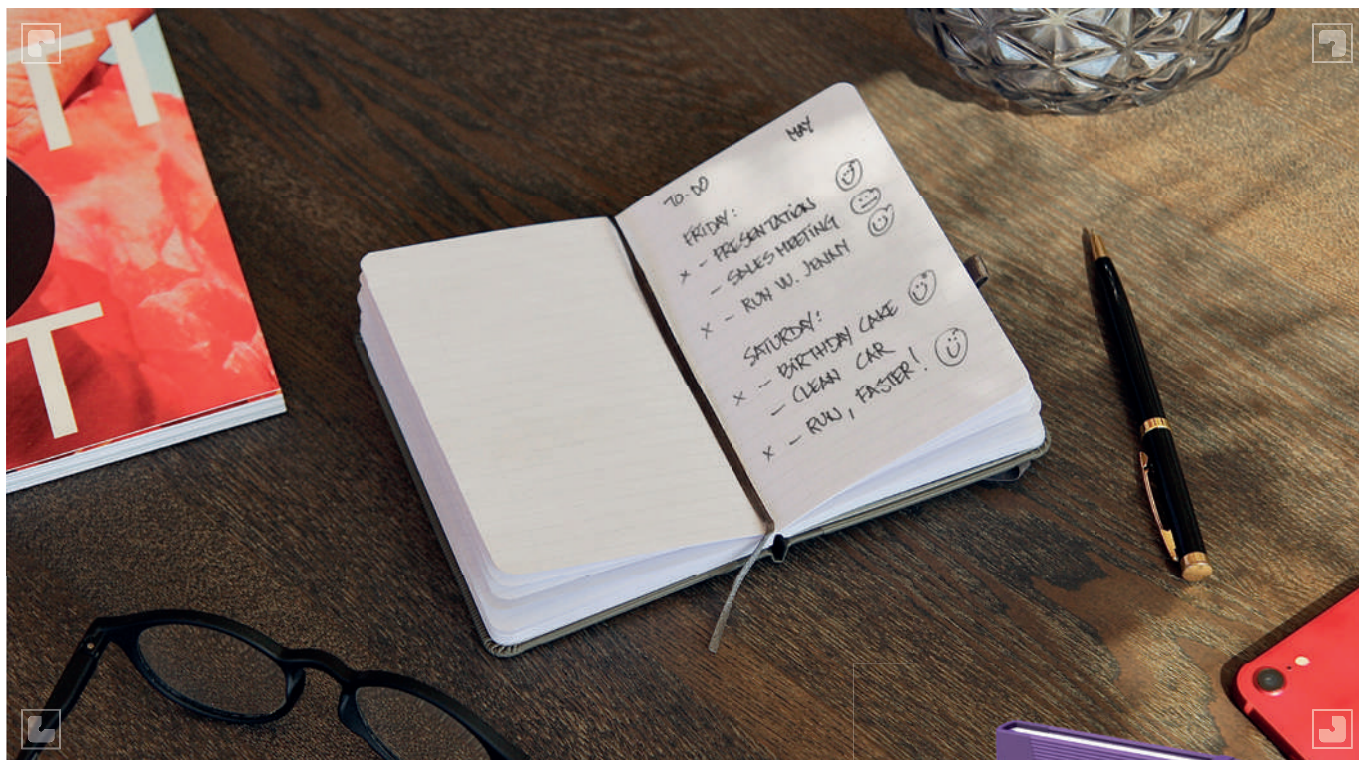 MAY
TO-DO
FRIDAY:
x - PRESENTATION
- SALES MEETING
x - RUN W. JENNY
SATURDAY:
x - BIRTHDAY CAKE
- CLEAN CAR
x - RUN, FASTER!
TI
T